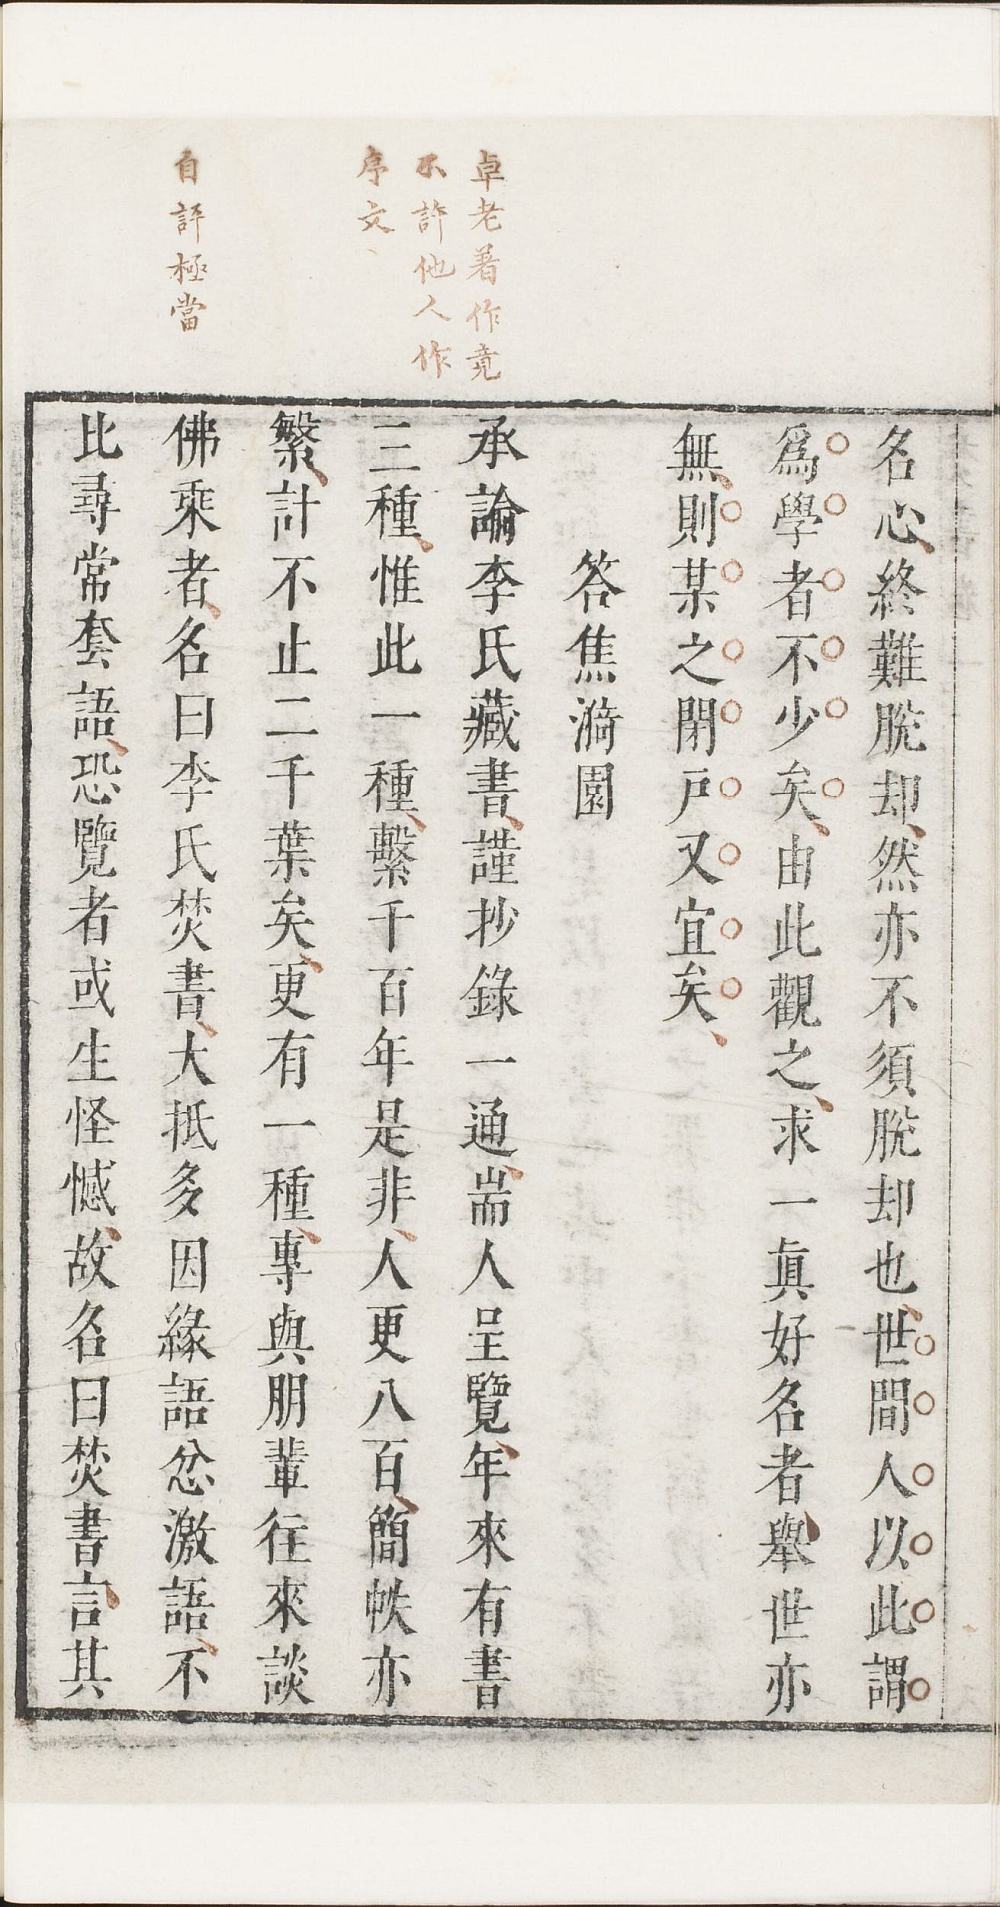 卓老著作竟
不許他人作
序文
自評極當
名心終難脫却然亦不須脫却也世間人以此謂
爲學者不少矣由此觀之求一眞好名者舉世亦
無則某之閉戸又宜矣
答焦漪園
承諭李氏藏書謹抄錄一通耑人呈覽年來有書
三種惟此一種繫千百年是非人更八百簡帙亦
繁計不止二千葉矣更有一種專與朋輩往來談
佛乘者名曰李氏焚書大抵多因緣語忿激語不
比尋常套語恐覽者或生怪憾故名曰焚書言其